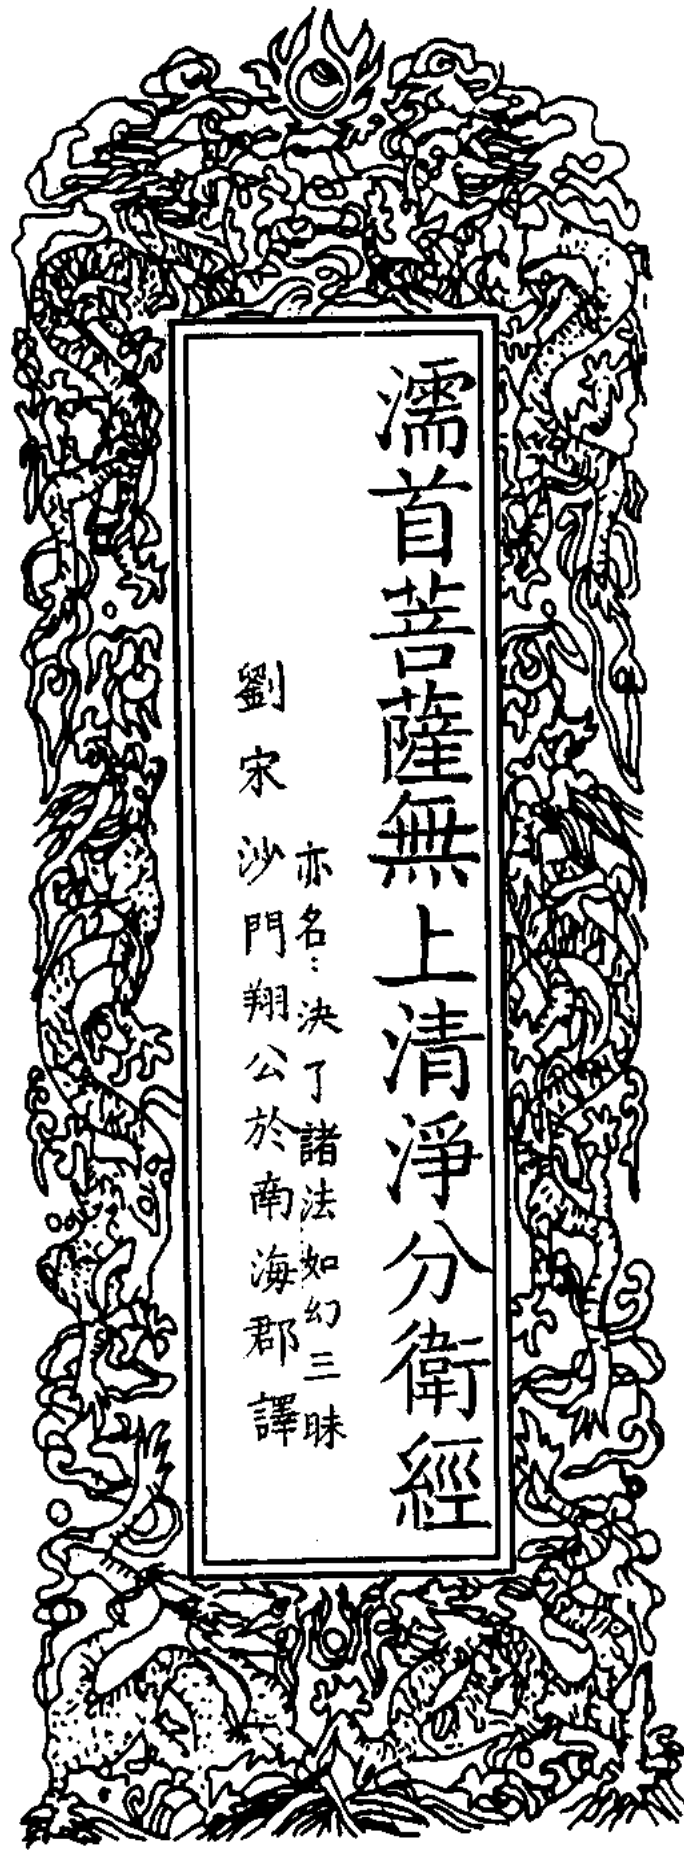 濡首菩薩無上清淨分衛經
亦名：決了諸法如幻三昧
劉宋沙門翔公於南海郡譯